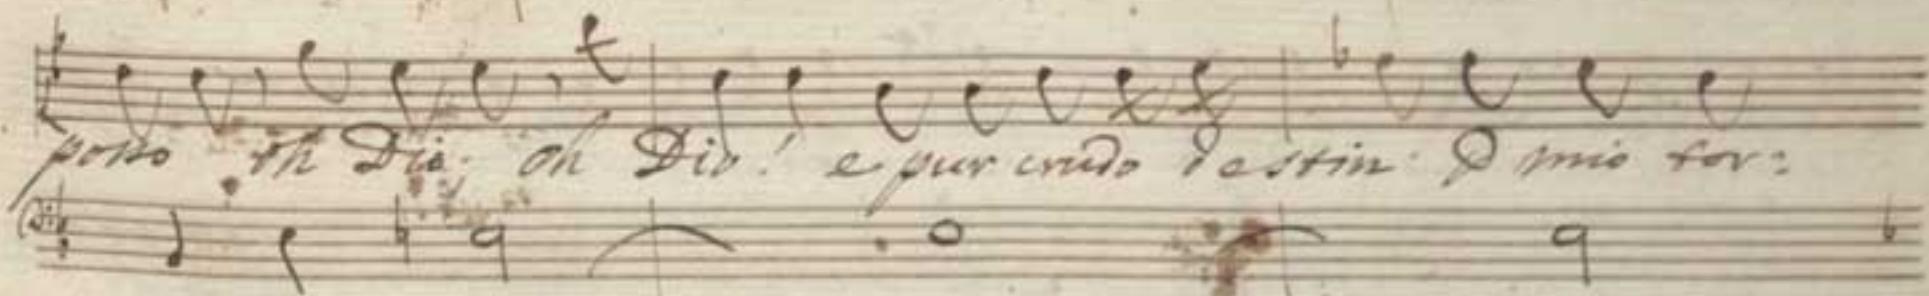 posso oh Dio: oh Dio! e pur crudo destin: O mio tor: